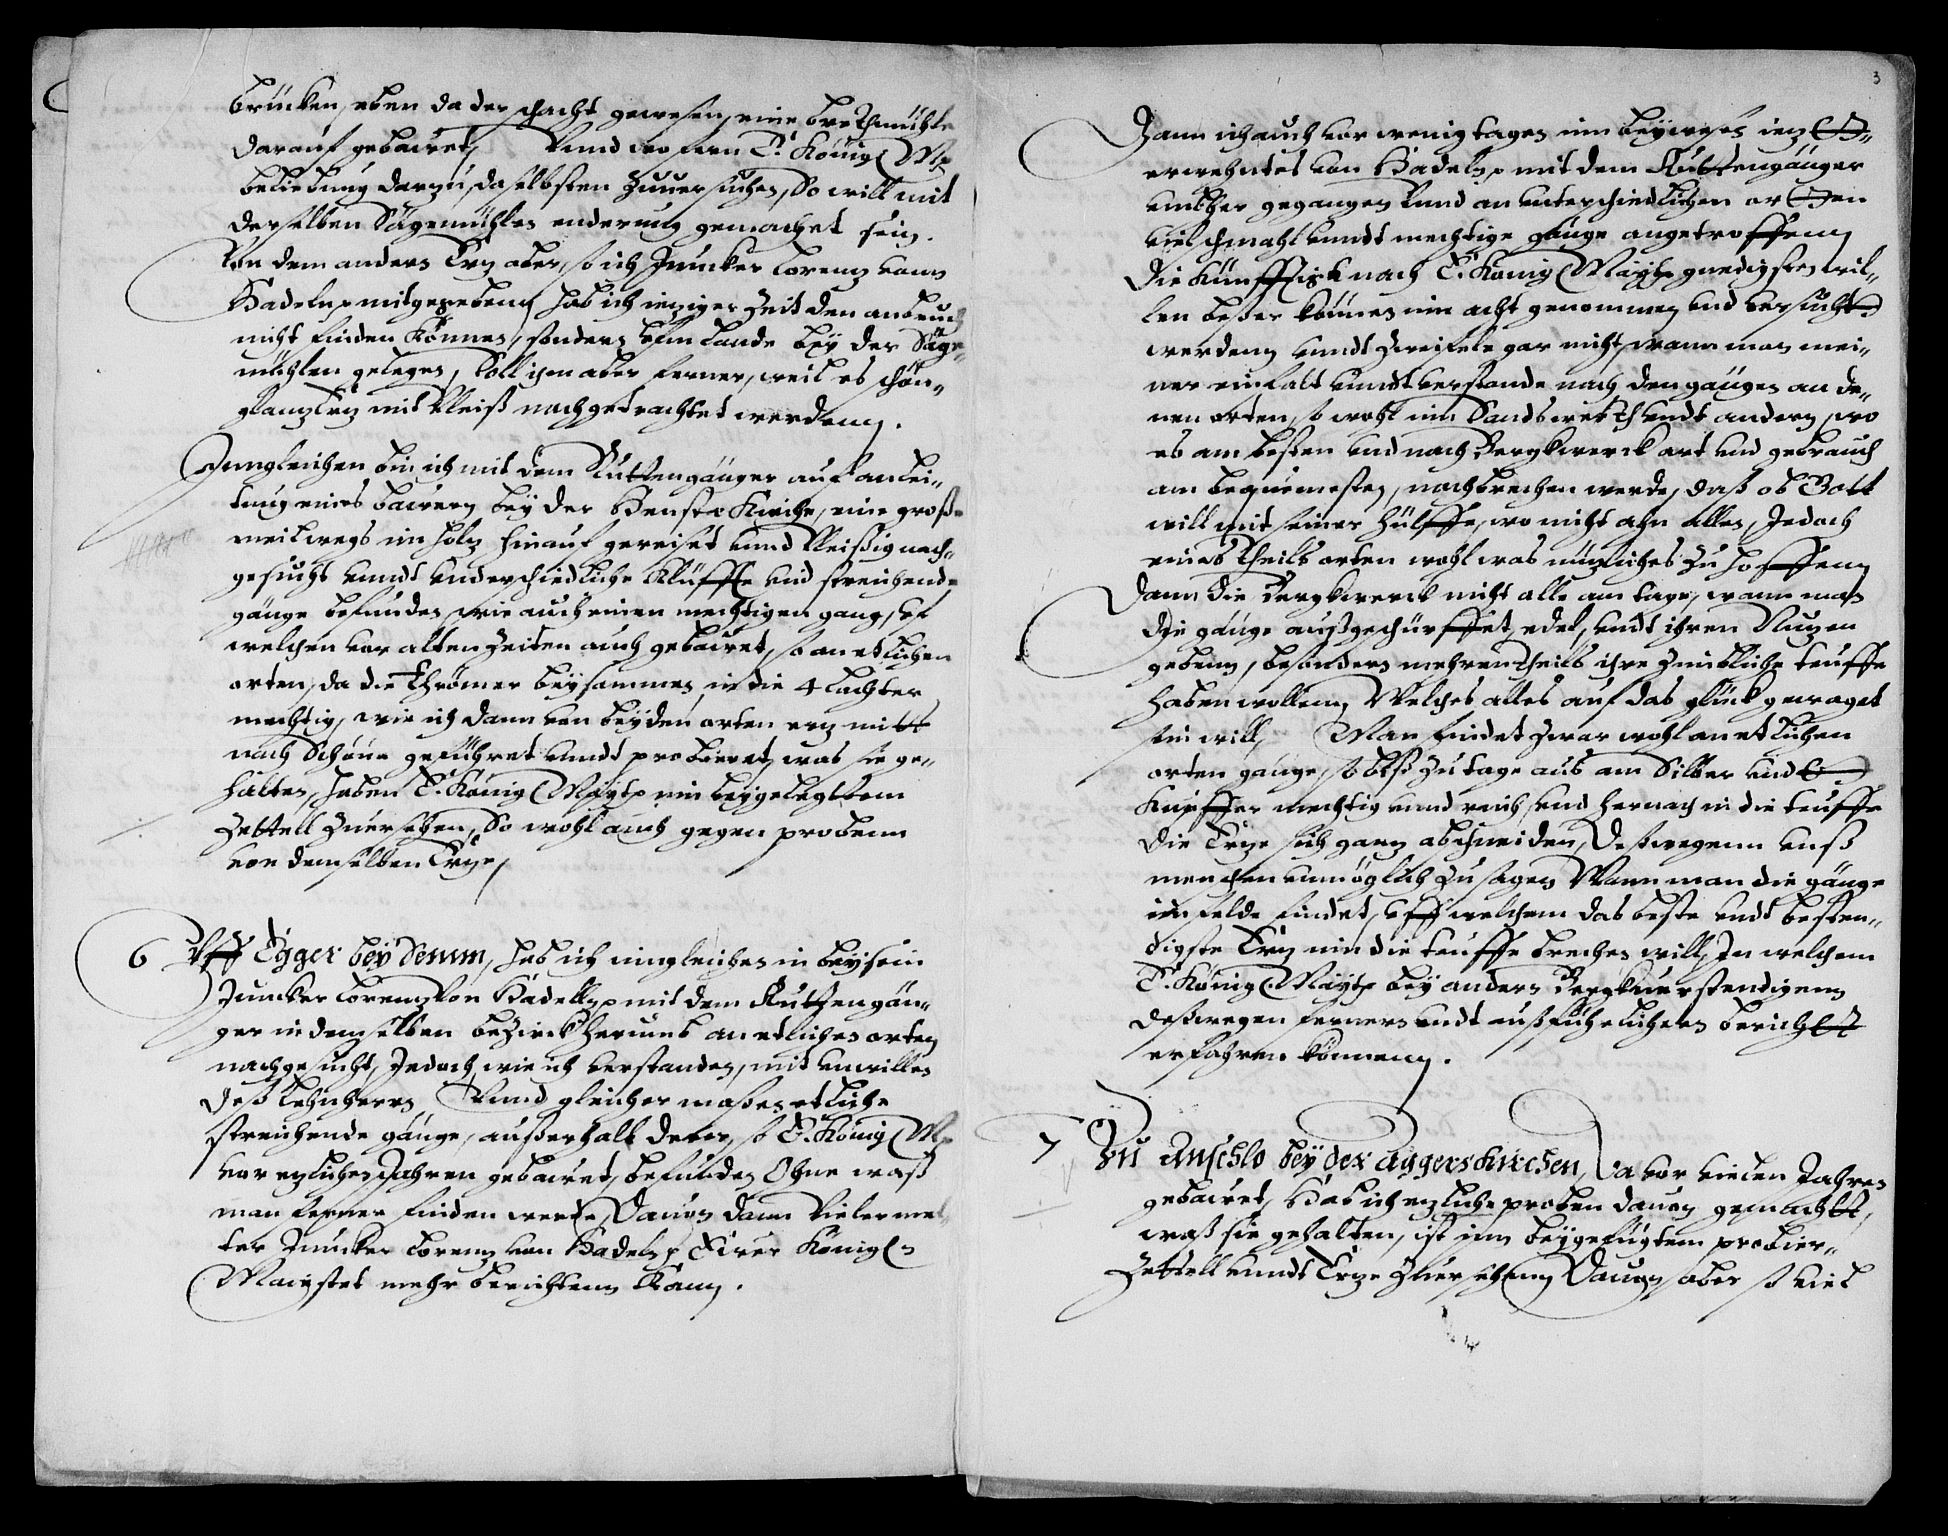 brücken, eben da der schacht gewesen, eine bretmühle
darauf gebawet, Vnnd wo fern E. König M.
beliebung darzu, daselbsten zuuersuchen, So will mit
derselben Sägemühlen enderung gemachet sein.
Von dem andern Ertz aber, so ich Juncker Lorentz vann
Hadeln mitgegeben, hab ich ietziger Zeit den anbruch
nicht finden können, sondern beim Lande bey der Säge-
mühlen gelegen, Soll ihm aber ferner, weil es schön
glantz Ertz mit Vleiß nachgetrachtet werdenn.
Inngleichen bin ich mit dem Ruttengänger auf anlei-
tung eines bawern bey der Kirche, eine große
meilwegs im holtz hinauf gereiset vnnd Vleißig nach-
gesucht vnndt vnderschiedliche Klüffte vnd streichende
gänge befunden, wie auch einen mechtigen gang, uf
welchen vor alten Zeiten auch gebawet, so an etlichen
orten, da die Thrömer beysammen, in die 4 lachter
mechtig, wie ich dann von beyden orten ertz mitt
nach Schöne geführet vnndt probieret, was sie ge-
halten, haben E. König Maytt. inn beygelegttem
Zettell zuersehen, So wohl auch gegen probenn
von demselben Ertze,
6 Vff Egger bey Semm, hab ich inngleichen in beysein
Juncker Lorentz von Hadelln mit dem Ruttengän-
ger in demselben bezirck herumb an etlichen orten
nachgesucht, Jedoch, wie ich verstanden, mit vnwillen
deß Lehnherrn Vnnd gleicher maßen etliche
streichende gänge, außerhalb derer, so E. König M.
vor etzlichen Jahren gebawet, befunden, Ohne waß
man ferner finden werde, Dauon dann Vielermel-
ter Juncker Lorentz von Hadeln Eurer König
Mayestet mehr berichtenn kann.
3
Dann ich auch vor wenig tagen inn beywesen ietz
erwehntes von Hadeln mit dem Ruttengänger
vmbher gegangen Vnnd an vnterschiedlichen orten
viel schmahl vnndt mechtige gänge angetroffenn,
die künfftig nach E. König Maytt. gnedigsten wil-
len beßer können inn acht genommen vnd versucht
werdenn, vnndt zweifele gar nicht, wann man mei-
ner einfalt vnndt verstande nach den gängen an de-
nen orten, so wohl inn Sandswerk vndt andern, wo
es am besten vnd nach Bergkwerck art vnd gebrauch
am bequemesten, nachbrechen werde, daß ob Gott
will mit seiner hülffe, wo nicht ahn allen, Jedoch
eines theils orten wohl was nützliches zu hoffenn,
Dann die Bergkwerck nicht alle am tage, wann man
die gänge außgeschürffet, edel, vndt ihren Nutzen
gebenn, besonders mehrentheils ihre zimbliche teuffe
haben wollenn, Welches alles auf das glück gewaget
sein will, Man findet zwar wohl an etlichen
orten gänge, so biß zu tage aus am Silber vnd
Kupffer mechtig vnnd reich, vnd hernach in die teuffe
die Ertze sich gantz abschneiden, Deßwegenn vnß
menschen vnmöglich zu sagen, Wann man die gänge
im felde findet, vff welchem das beste vndt besten-
digste Ertz inn die teuffe brechen will, In welchem
E. König. Maytt. bey andern Bergkuerstendigenn
deßwegen ferners vndt außführlichern bericht
erfahren könnenn.
7 Zu Anschlo bey der Aggerskirchen, Da vor vielen Jahren
gebawet, Hab ich etzliche proben dauon gemacht,
waß sie gehalten, ist inn beygefügtem probier-
Zettell vnndt Ertze zuersehenn, Dauon aber so viel